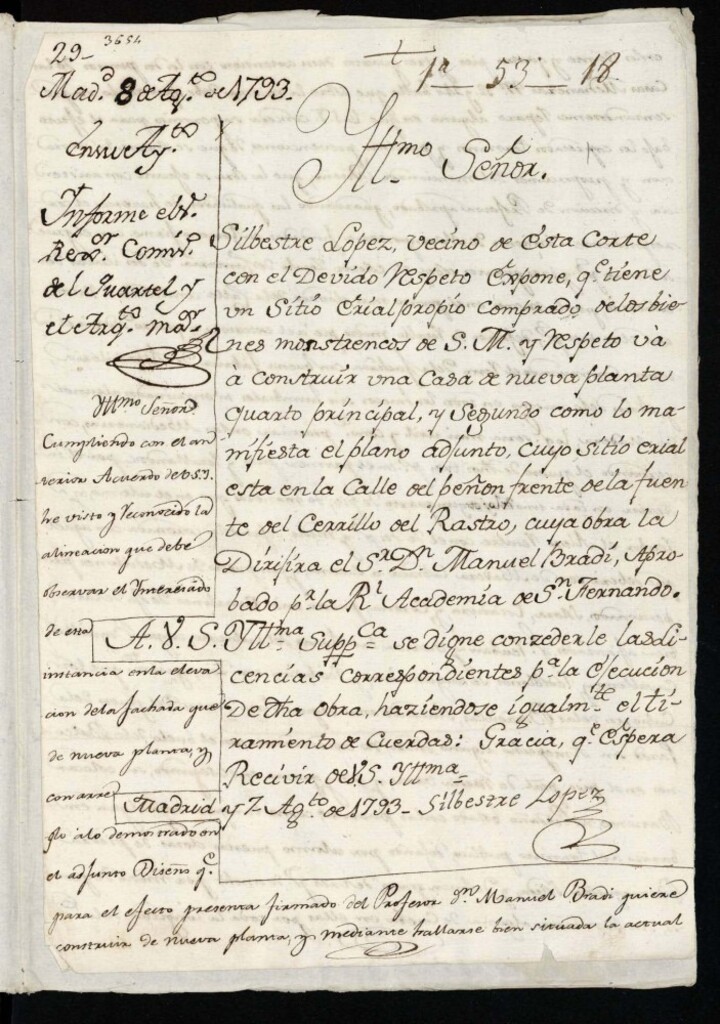 29-
3654
Mad.d 8 de Ag.to de 1793.
1a — 53 — 18
En su Ay.to
Informe el S.r
Rex.or Comis.
del Quartel y
el Arq.to ma.r
Yll.mo Señor.
Silbestre Lopez, vecino de esta Corte
con el Devido Respeto Expone, q.e tiene
un Sitio Erial propio comprado de los bie-
nes monstrencos de S. M. y Respeto và
à construir vna Casa de nueva planta
quarto principal, y Segundo como lo ma-
nifiesta el plano adjunto, cuyo sitio erial
esta en la Calle del peñon frente de la fuen-
te del Cerrillo del Rastro, cuya obra la
Dirijira el S.r D.n Manuel Bradi, Apro-
bado p.r la R.l Academia de S.n Fernando.
A. V. S. Yll.ma Supp.ca se digne conzederle las Li-
cencias correspondientes p.a la ejecucion
De dha obra, haziendose igualm.te el ti-
ramiento de Cuerdas: Gracia, q.e espera
Recivir de V.S. Yll.ma
Madrid y 7 Ag.to de 1793- Silbestre Lopez
Yll.mo Señor
Cumpliendo con el an-
terior Acuerdo de V.S.I.
he visto y reconocido la
alineacion que debe
observar el Ynteresado
de esta
instancia en la eleva
cion de la fachada que
de nueva planta, y
con arre
glo a lo demostrado en
el adjunto Diseño q.e
para el efecto presenta firmado del Profesor D.n Manuel Bradi quiere
construir de nueva planta, y mediante hallarse bien situada la actual